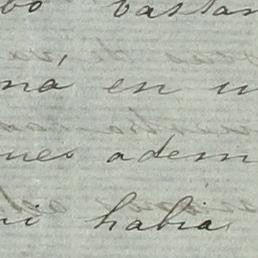 bo bastan
na en u
ues adem
ni habia